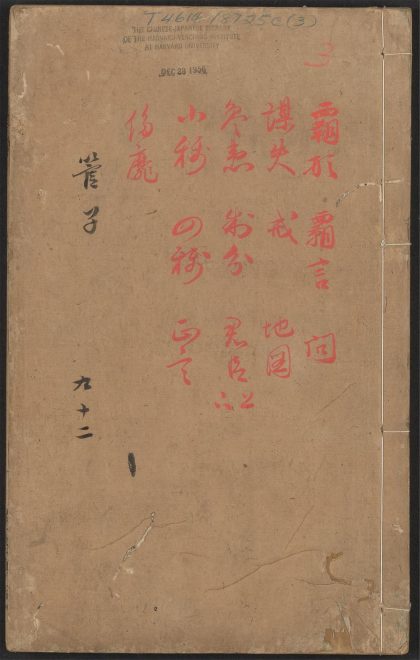 THE CHINESE-JAPANESE LIBRARY
OF THE HARVARD-YENCHING INSTITUTE
AT HARVARD UNIVERSITY
3
霸形 霸言 問
謀失 戒 地図
参患 制分 君臣上下
小稱 四稱 正言
侈靡
管子 九十二